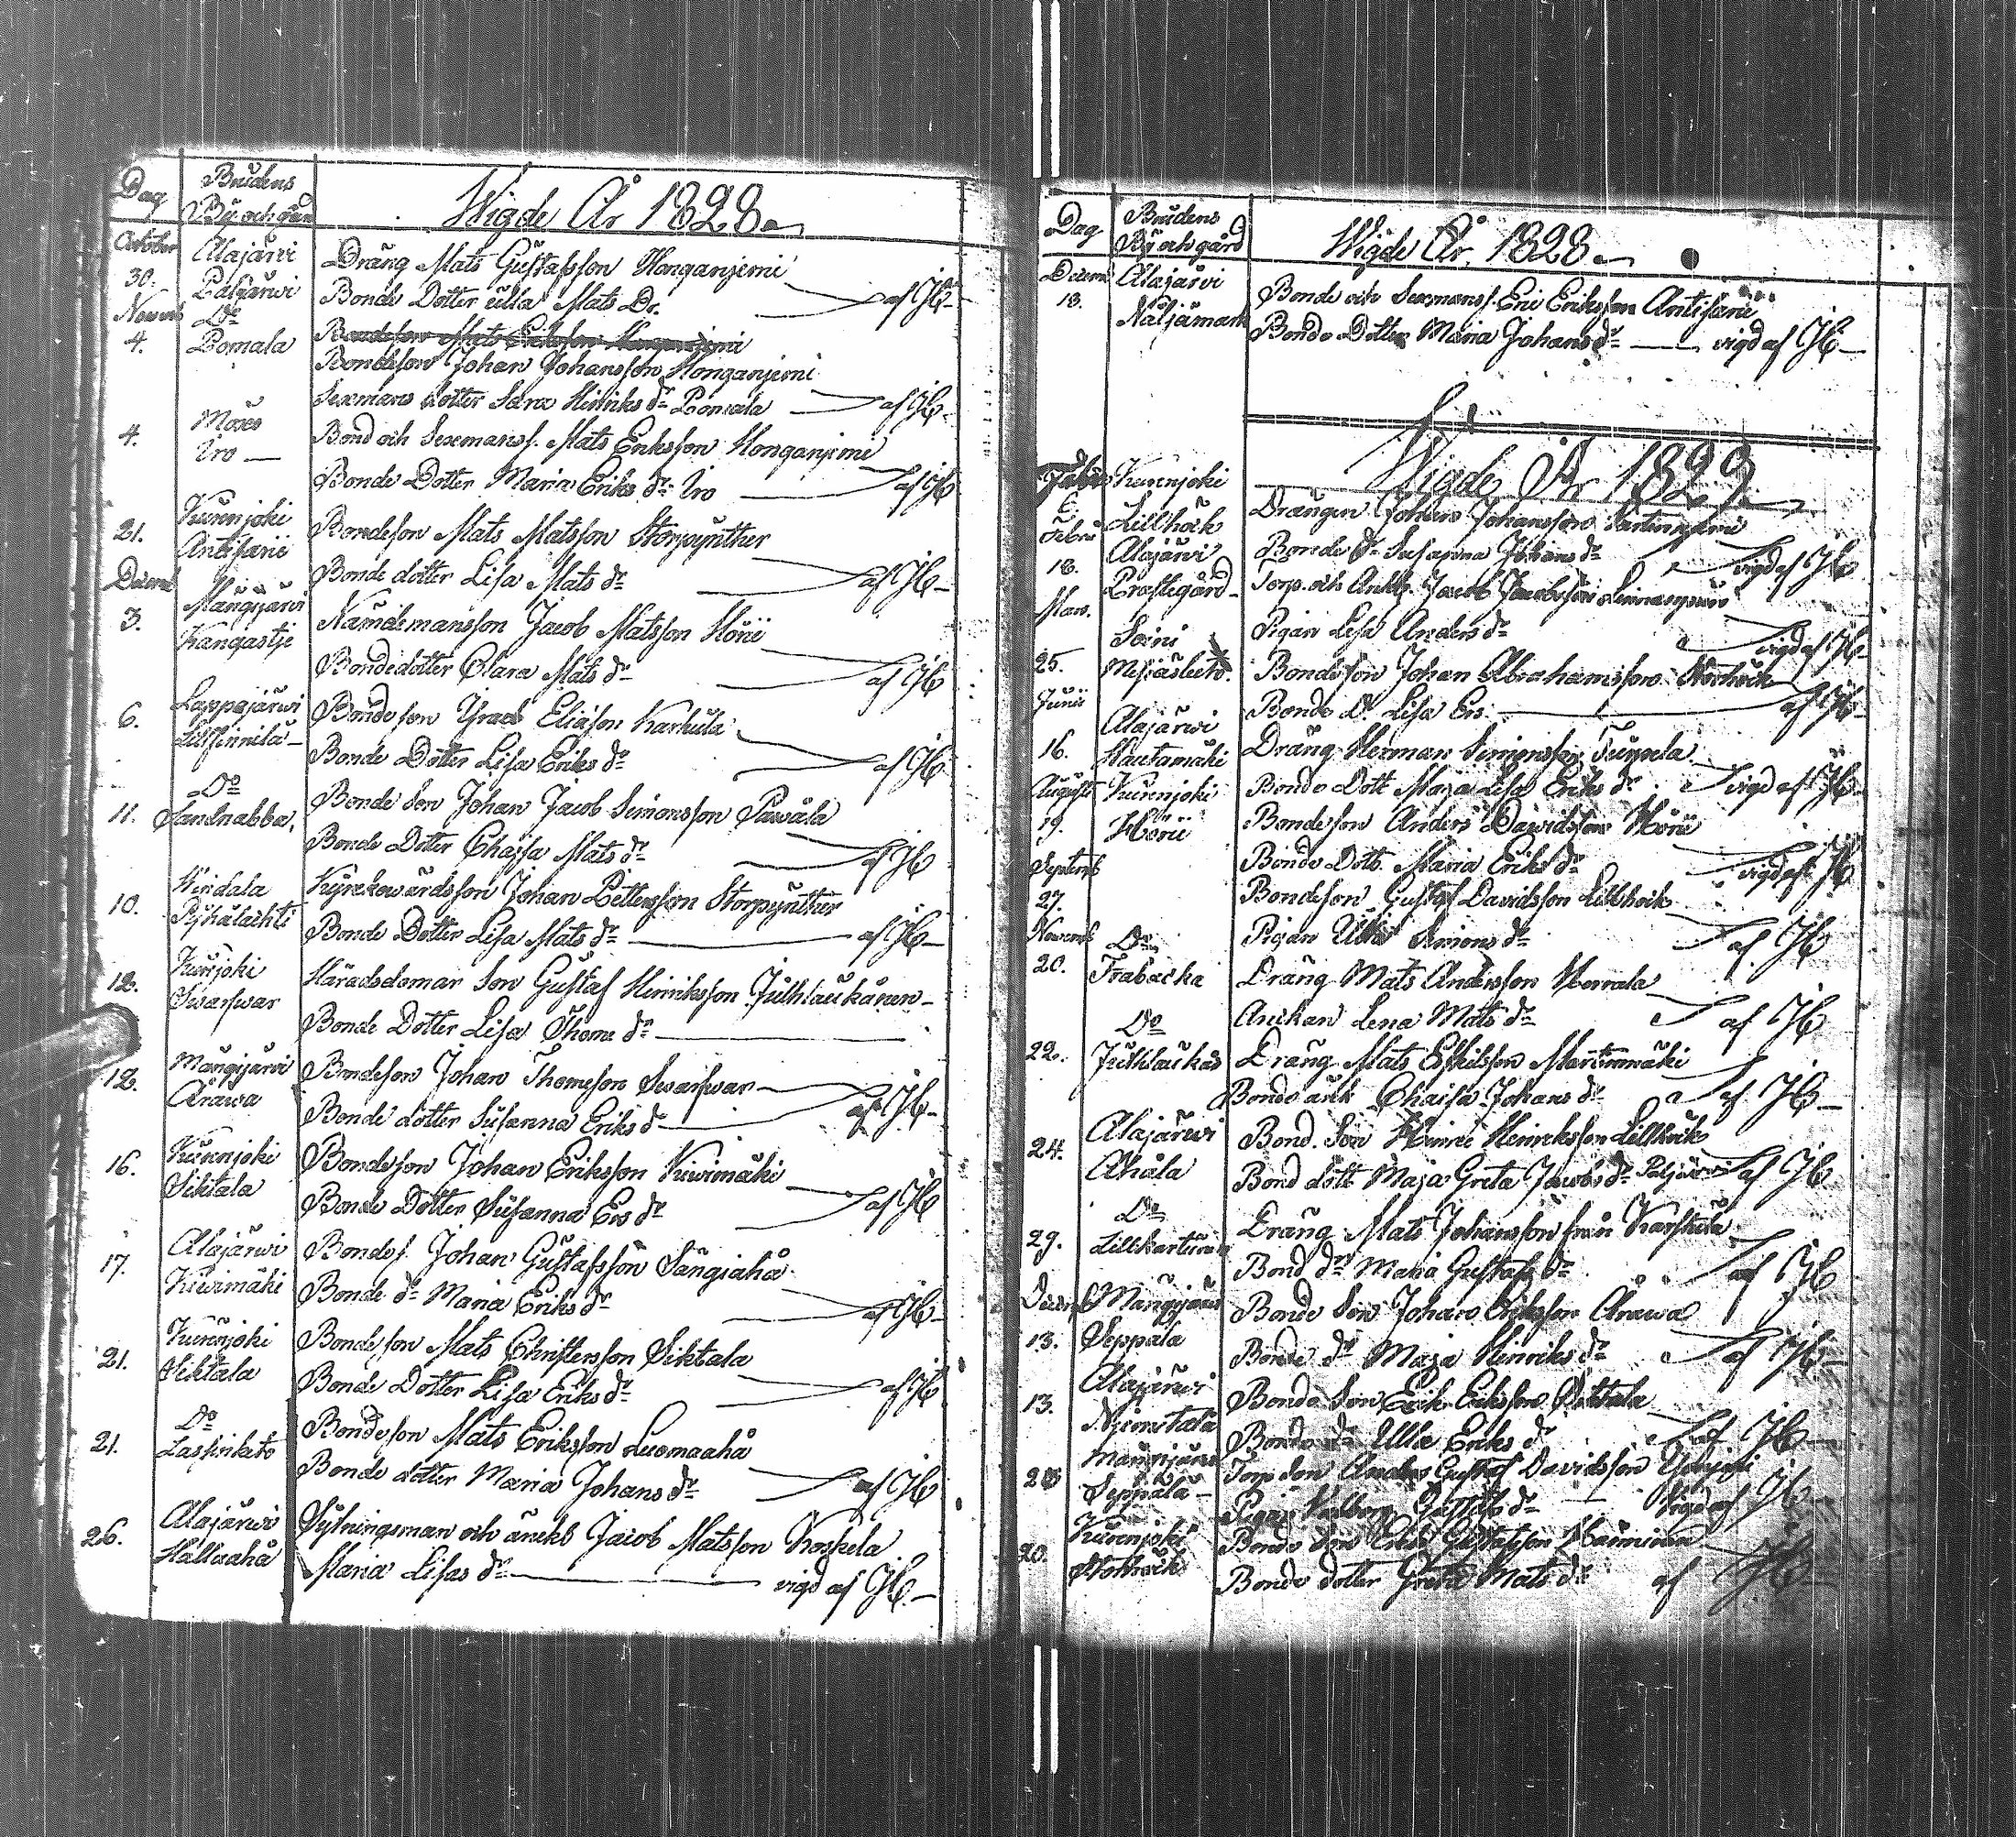 Dag
Brudens
By och gård
Wigde År 1828.
October
30.
Alajärvi
Paljärwi
Dräng Mats Gustafsson Honganjemi
Bonde Dotter Ulla Mats Dr. af JH
Novemb
4.
Do
Pomala
Bondeson Mats Eriksson Honganjemi
Bondeson Johan Johansson Honganjemi
Sexmans dotter Sara Hinriks dr Pomala af JH
4.
Möxes
Iro
Bond och Sexmans s. Mats Eriksson Honganjemi
Bonde Dotter Maria Eriks dr Iro af JH
21.
Kurenjoki
Antisarii
Bondeson Mats Matsson Storpynther
Bonde dotter Lisa Mats dr af JH
Decemb
3.
Mängijärvi
Kangastje
Nämdemansson Jacob Matsson Hörii
Bondedotter Clara Mats dr af JH
6.
Lappajärwi
Lillfinnila
Bondeson Israel Eliason Karhula
Bonde Dotter Lisa Eriks dr af JH
11.
Do
Sandnabba
Bonde son Johan Jacob Simonsson Pawåla
Bonde Dotter Chaisa Mats dr af JH
10.
Windala
Pyhälachti
Kyrckowärdsson Johan Pettersson Storpynther
Bonde Dotter Lisa Mats dr af JH
12.
Kurjoki
Swarfwar
Häradsdomar Son Gustaf Hinriksson Julhlaukånen
Bonde Dotter Lisa Thome dr
12.
Mängijärvi
Ånawa
Bondeson Johan Thomeson Swarfwar
Bonde dotter Susanna Eriks d af JH
16.
Kurenjoki
Siktala
Bondeson Johan Eriksson Kiwimäki
Bonde Dotter Susanna Ers dr af JH
17.
Alajärwi
Kiwimäki
Bondes. Johan Gustafsson Sängiaho
Bonde dr Maria Eriks dr af JH
21.
Kurenjoki
Siktala
Bondeson Mats Christersson Siktala
Bonde Dotter Lisa Eriks dr af JH
21.
Do
Lassinketo
Bondeson Mats Eriksson Luomaaho
Bonde dotter Maria Johans dr af JH
26.
Alajärwi
Hallaaho
Sytningsman och änckl Jacob Matsson Koskela
Maria Lisas dr vigd af JH.
Dag
Brudens
By och gård
Wigde År 1828.
Decemb
13.
Alajärvi
Näljämark
Bonde och Sexmans s. Eric Eriksson Antisarii
Bonde Dotter Maria Johans dr vigd af JH
Wigde År 1829
6.
Kurenjoki
Lillhöik
Drängen Johan Johansson
Bonde dr Susanna Johans dr vigd af JH
Febru
18.
Alajärvi
Prästegård
Torp. och Ankl. Jacob Jacobsson
Pigan Lisa Anders dr vigd af JH
Mars.
25.
Soini
Bondeson Johan Abrahamsson
Bonde D. Lisa Ers. af JH
Junii
16.
Alajärwi
Hautamäki
Dräng Herman Simonsson
Bonde Dott Maja Lisa Eriks dr vigd af JH
Augusti
19.
Kurenjoki
Hörii
Bondeson Anders Davidsson Hörii
Bonde Dott. Maria Eriks dr vigd af JH
Septemb
27.
Bondeson Gustaf Davidsson Lillhoik
Pigan Ulla Simons dr af JH
Novemb
20.
Do
Trabacka
Dräng Mats Andersson
Anckan Lena Mats dr af JH
22.
Do
Julhlaukas
Dräng Mats Eskilsson Martinmäki
Bonde änk Chaisa Johans dr af JH
24.
Alajärwi
Ahåla
Bond. Son Hinric Hinriksson Lillhoik
Bond dott Maja Greta Jacobs dr af JH
29.
Do
Dräng Mats Johansson från Karstula
Bond dr Maria Gustafs dr af JH
Decemb
13.
Mängijärvi
Seppälä
Bonde Son Johan Eriksson Ånawa
Bonde dr Maja Hinriks dr af JH
13.
Alajärwi
Niemitala
Bonde Son Erik Eriksson
Bonde dr Ulla Eriks d af JH
Seppälä
Torp son Anders Gustaf Davidsson
Pigan dr vigd af JH
20.
Kurenjoki
Bonde Son Gustafsson
Bonde dotter Greta Mats dr af JH